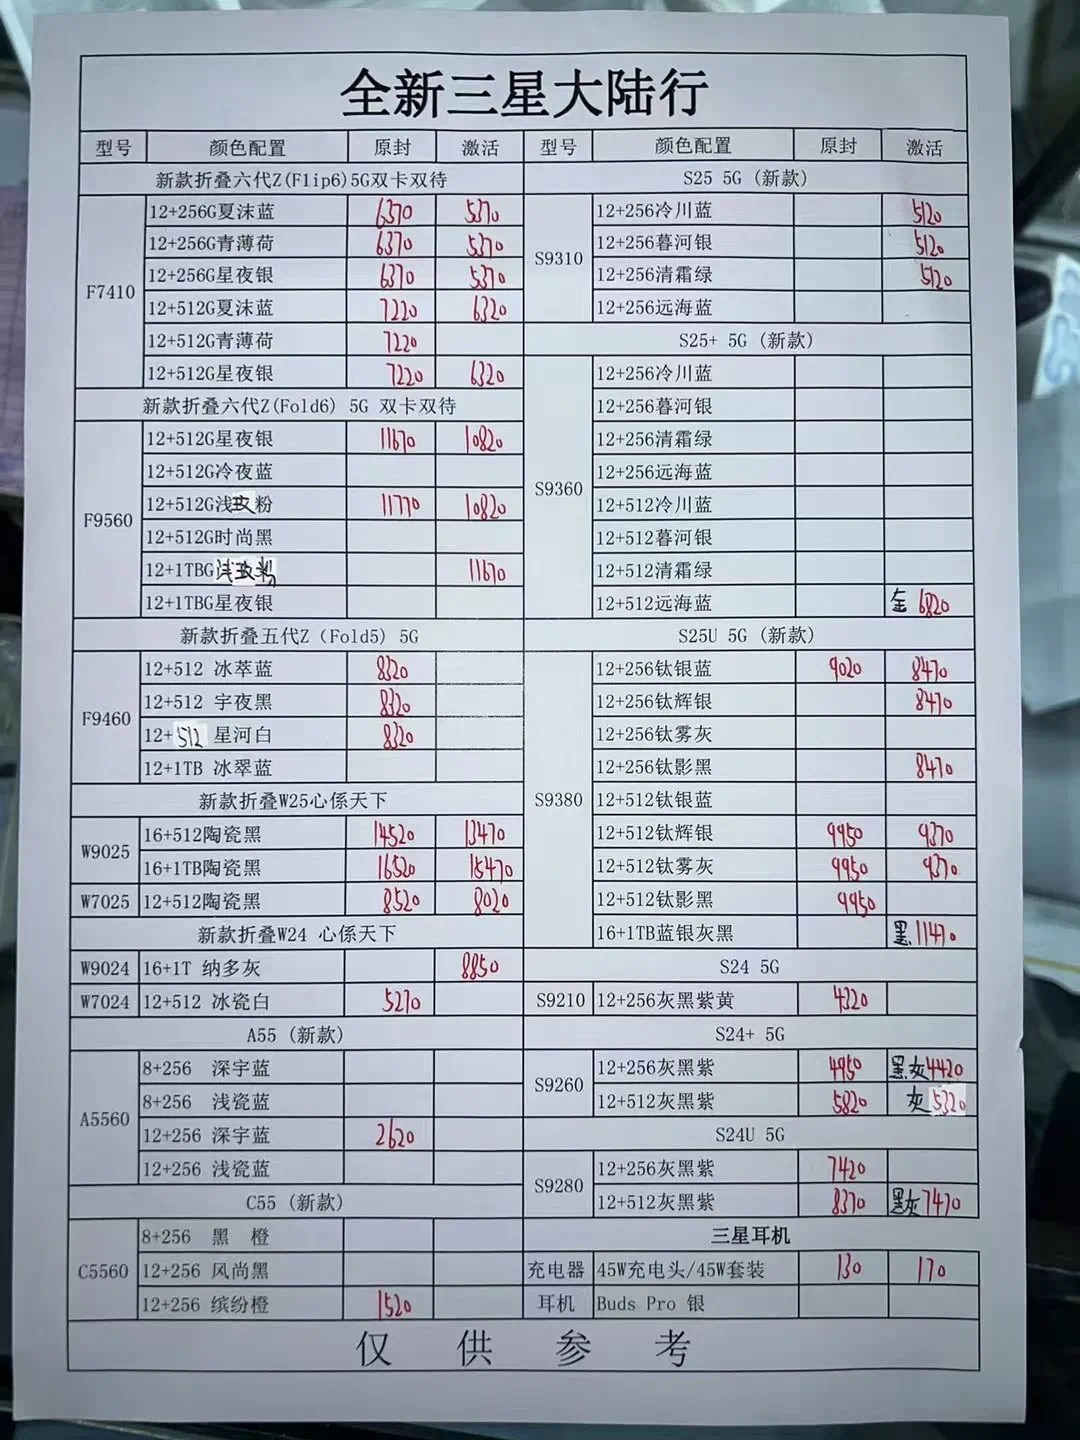 全新三星大陆行
型号 颜色配置 原封 激活 型号 颜色配置 原封 激活
新款折叠六代Z(Flip6)5G双卡双待
F7410
12+256G夏沫蓝 6370 5370
12+256G青薄荷 6370 5370
12+256G星夜银 6370 5370
12+512G夏沫蓝 7220 6320
12+512G青薄荷 7220
12+512G星夜银 7220 6320
新款折叠六代Z(Fold6) 5G 双卡双待
F9560
12+512G星夜银 11670 10820
12+512G冷夜蓝
12+512G浅玫粉 11770 10820
12+512G时尚黑
12+1TBG浅玫粉 11670
12+1TBG星夜银
新款折叠五代Z（Fold5）5G
F9460
12+512 冰萃蓝 8320
12+512 宇夜黑 8320
12+512 星河白 8320
12+1TB 冰翠蓝
新款折叠W25心係天下
W9025
16+512陶瓷黑 14520 13470
16+1TB陶瓷黑 16520 15470
W7025 12+512陶瓷黑 8520 8020
新款折叠W24 心係天下
W9024 16+1T 纳多灰 8850
W7024 12+512 冰瓷白 5270
A55（新款）
A5560
8+256 深宇蓝
8+256 浅瓷蓝
12+256 深宇蓝 2620
12+256 浅瓷蓝
C55（新款）
C5560
8+256 黑 橙
12+256 风尚黑
12+256 缤纷橙 1520
S25 5G（新款）
S9310
12+256冷川蓝 5120
12+256暮河银 5120
12+256清霜绿 5120
12+256远海蓝
S25+ 5G（新款）
S9360
12+256冷川蓝
12+256暮河银
12+256清霜绿
12+256远海蓝
12+512冷川蓝
12+512暮河银
12+512清霜绿
12+512远海蓝 全 6820
S25U 5G（新款）
S9380
12+256钛银蓝 9020 8470
12+256钛辉银 8470
12+256钛雾灰
12+256钛影黑 8470
12+512钛银蓝
12+512钛辉银 9950 9370
12+512钛雾灰 9950 9370
12+512钛影黑 9950
16+1TB蓝银灰黑 黑11470
S24 5G
S9210 12+256灰黑紫黄 4320
S24+ 5G
S9260
12+256灰黑紫 4950 黑灰4420
12+512灰黑紫 5820 灰 5320
S24U 5G
S9280
12+256灰黑紫 7420
12+512灰黑紫 8370 黑灰7470
三星耳机
充电器 45W充电头/45W套装 130 170
耳机 Buds Pro 银
仅供参考